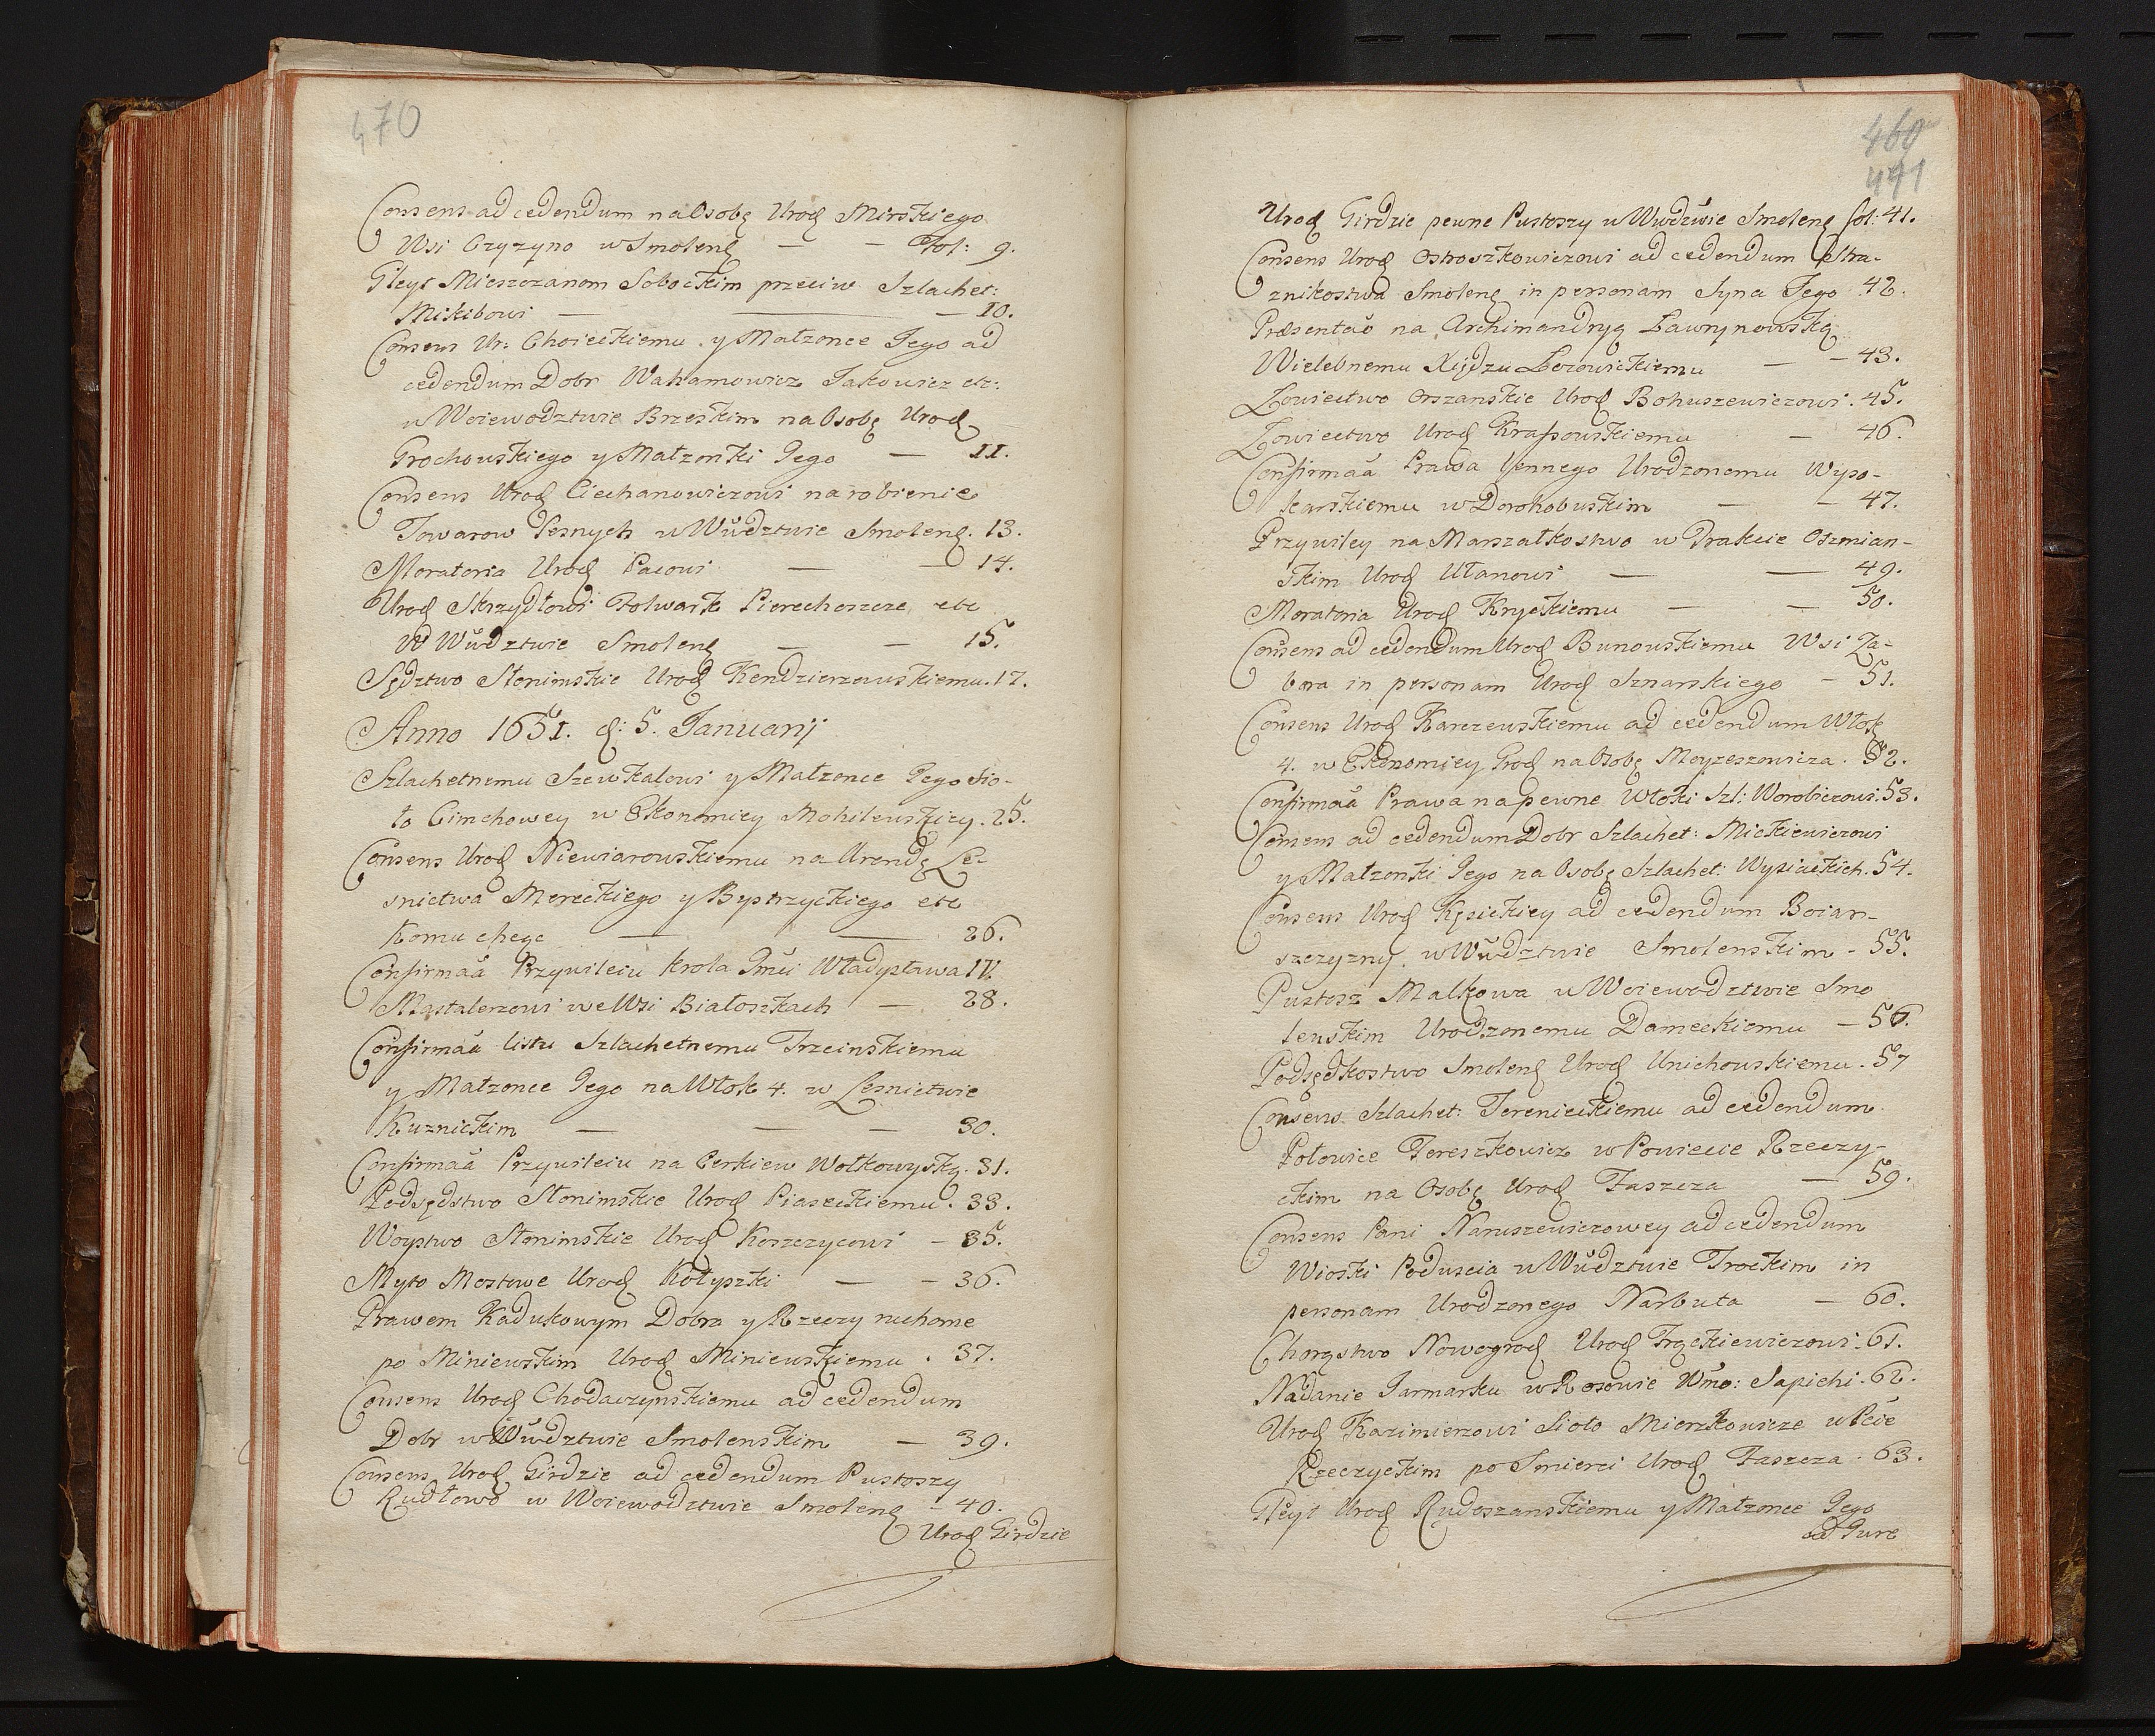 470
Consens ad cedendum na Osobę Urod Mirskiego
Wsi Czyzyno w Smolens — — Fol: 9.
Gleyt Mieszczanom Sobockim przeciw Szlachet:
— — 10.
Consens Ur: Choieckiemu y Małzonce Jego ad
cedendum Dobr Wahamowicz Jakowicz etc:
w Woiewodztwie Brzeskim na Osobę Urod
Grochowskiego y Małzonki Jego — 11.
Consens Urod Ciechanowiczowi na robienie
Towarow Lesnych w Wudztwie Smolens. 13.
Moratoria Urod Pacowi — — 14.
Urod Skrzydłowi Folwark Pierechoszcze etc
W Wudztwie Smolens — — 15.
Sędztwo Słonimskie Urod Kendzierzawskiemu. 17.
Anno 1651. d: 5. Januarij
Szlachetnemu Szewkalowi y Małzonce Jego Sio-
ło Cimchowey w Ekonomiey Mohilewskiey. 25.
Consens Urod Niewiarowskiemu na Arendę Le-
snictwa Mereckiego y Bystrzyckiego etc
Komu chcąc — — 26.
Confirmaã Przywileiu Krola Jmći Władysława IV.
Mastalerzowi we Wsi Białoszkach — 28.
Confirmaã listu Szlachetnemu Trzcinskiemu
y Małzonce Jego na Włok 4. w Lesnictwie
Kuznickim — — — 30.
Confirmaã Przywileiu na Cerkiew Wołkowyską. 31.
Podsędstwo Słonimskie Urod Piaseckiemu. 33.
Woystwo Słonimskie Urod Koszczycowi — 35.
Myto Mostowe Urod Kotyszki — — 36.
Prawem Kadukowym Dobra y Rzeczy ruchome
po Miniewskim Urod Miniewskiemu . 37.
Consens Urod Chodaczynskiemu ad cedendum
Dobr w Wudztwie Smolenskim — 39.
Consens Urod Girdzie ad cedendum Pustoszy
Rudłowo w Woiewodztwie Smolens — 40.
Urod Girdzie
460
471
Urod Girdzie pewne Pustoszy w Wwdztwie Smolens fol: 41.
Consens Urod Ostroszkowiczowi ad cedendum Stra-
znikostwa Smolens in personam Syna Jego 42.
Præsentaõ na Archimandryą Ławrynowską
Wielebnemu Xiędzu — — 43.
Łowiectwo Orszanskie Urod Bohuszewiczowi. 45.
Łowiectwo Urod Krassowskiemu — 46.
Confirmaã Prawa Lennego Urodzonemu Wyso-
karskiemu w Dorohobuskim — — 47.
Przywiley na Marszałkostwo w Trakcie Oszmian-
skim Urod Ułanowi — — 49.
Moratoria Urod Kryckiemu — — 50.
Consens ad cedendum Urod Bunowskiemu Wsi Za-
bora in personam Urod Sznarskiego — 51.
Consens Urod Karczewskiemu ad cedendum Włok
4. w Ekonomiey Grod na Osobę Moyzeszowicza. 52.
Confirmaã Prawa na pewne Włoki Szl: Worobiczowi. 53.
Consens ad cedendum Dobr Szlachet: Mickiewiczowi
y Małzonki Jego na Osobę Szlachet: Wysiackich. 54.
Consens Urod Kęsickiey ad cedendum Boian-
szczyzny w Wudztwie Smolenskim — 55.
Pustosz Malkowa w Woiewodztwie Smo
lenskim Urodzonemu Dameckiemu — 56.
Podsędkostwo Smolens Urod Unichowskiemu. 57
Consens Szlachet: Terenieckiemu ad cedendum
Połowice Tereszkowicz w Powiecie Rzeczy-
ckim na Osobę Urod Faszcza — 59.
Consens Pani Naruszewiczowey ad cedendum
Wioski Poduscia w Wudztwie Trockim in
personam Urodzonego Narbuta — 60.
Chorąstwo Nowogrod Urod Frąckiewiczowi. 61.
Nadanie Jarmarku w Rosowie Wmo: Sapiehi. 62.
Urod Kazimierzowi Sioło Mierzkowicze w Pcie
Rzeczyckim po Smierci Urod Faszcza. 63.
Gleyt Urod Rudoszanskiemu y Małzonce Jego
ad Jure